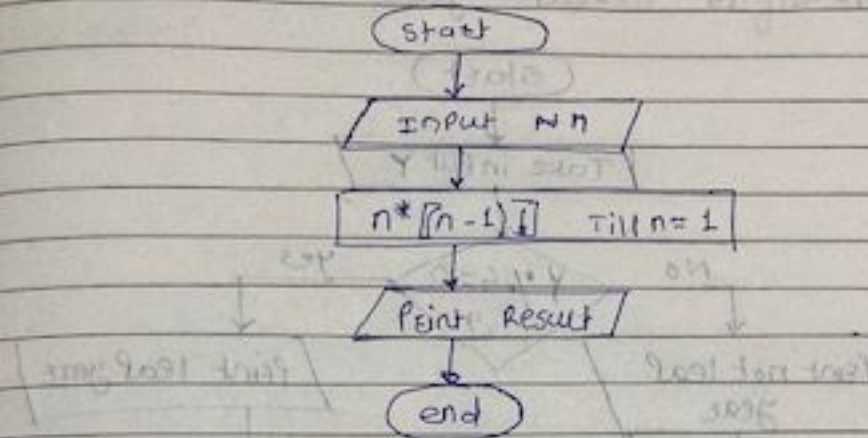 Start
Input n
n*[(n-1)] Till n=1
Print Result
end